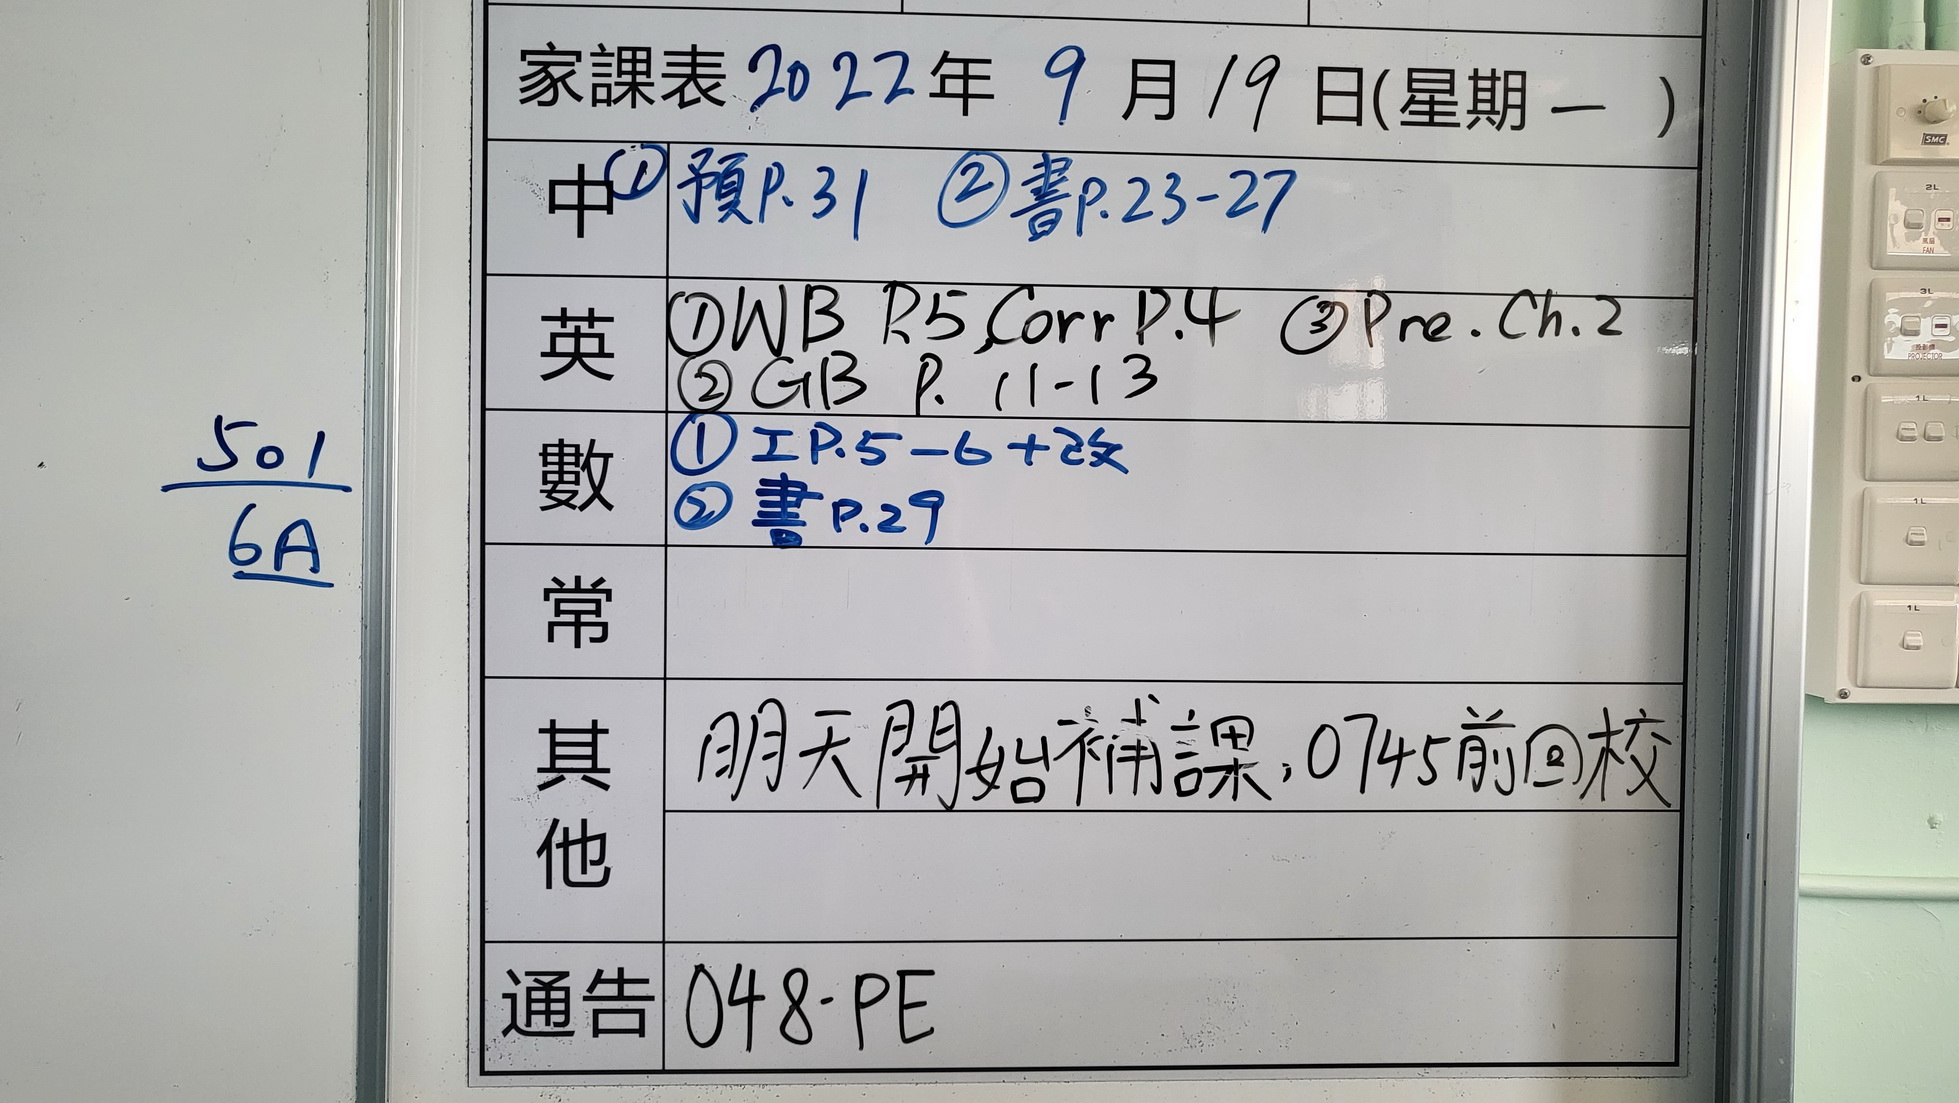 家課表 2022年 9月19日(星期一)
中 ①預P.31 ②書P.23-27
英 ①WB P.5,Corr P.4 ③Pre.Ch.2
②GB P. 11-13
數 ①工P.5-6+改
②書P.29
常
其他 明天開始補課,0745前回校
通告 048-PE
501
6A
SMC
2L
風扇
FAN
3L
投影機
PROJECTOR
1L
1L
1L